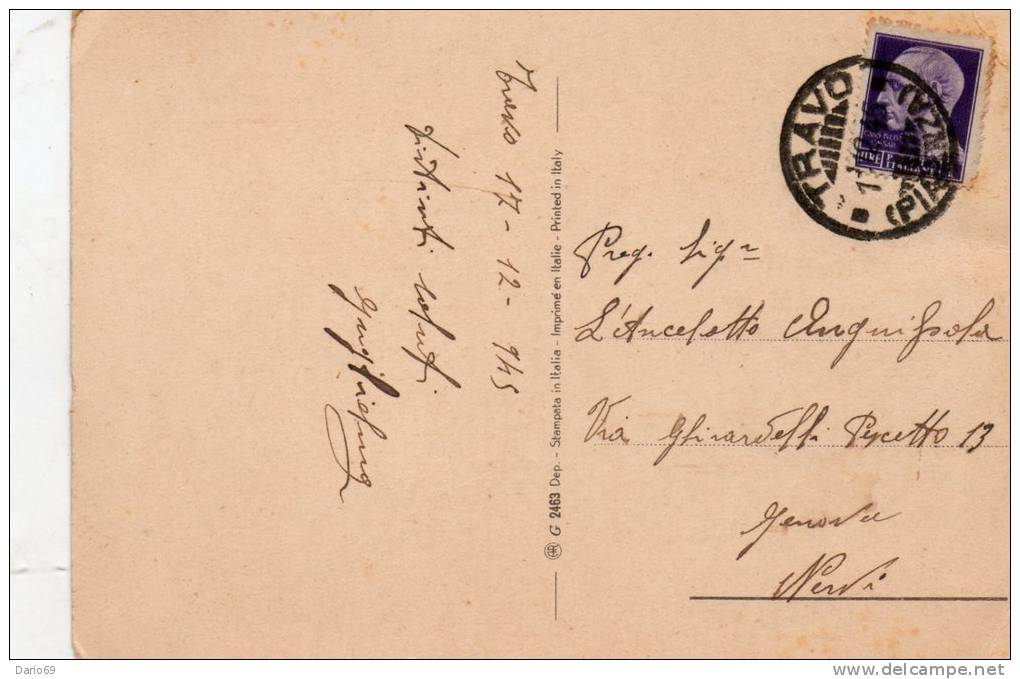 Travo 17-12-945
Distinti saluti
G 2463 Dep. - Stampata in Italia - Imprimé en Italie - Printed in Italy
TRAVO
(PIACENZA)
Preg. Sigr
L'Anceletto Anguissola
Via Ghirardelli Pescetto 13
Genova
Nervi
Dario69
www.delcampe.net